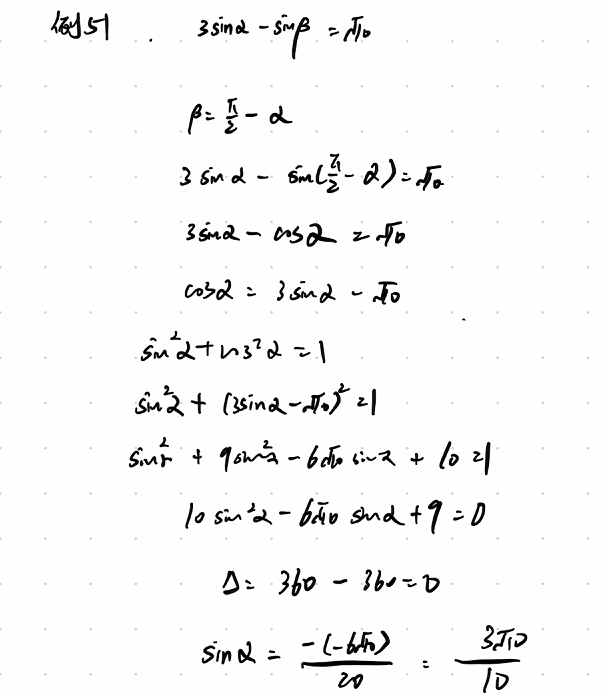 例51. 3sinα - sinβ = √10
β = π/2 - α
3 sinα - sin(π/2 - α) = √10
3sinα - cosα = √10
cosα = 3sinα - √10
sin²α + cos²α = 1
sin²α + (3sinα - √10)² = 1
sin²α + 9sin²α - 6√10 sinα + 10 = 1
10 sin²α - 6√10 sinα + 9 = 0
Δ = 360 - 360 = 0
sinα = -(-6√10)/20 = 3√10/10